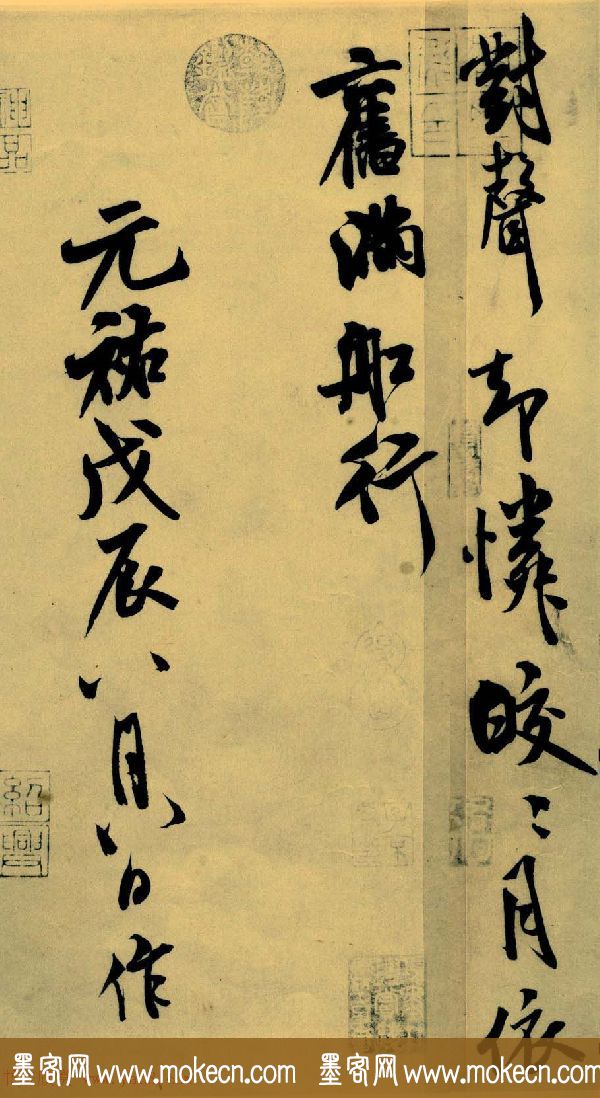 對聲却憐皎〻月依
舊滿船行
元祐戊辰八月八日作
紹興
墨客网 www.mokecn.com 墨客网 www.mokecn.com